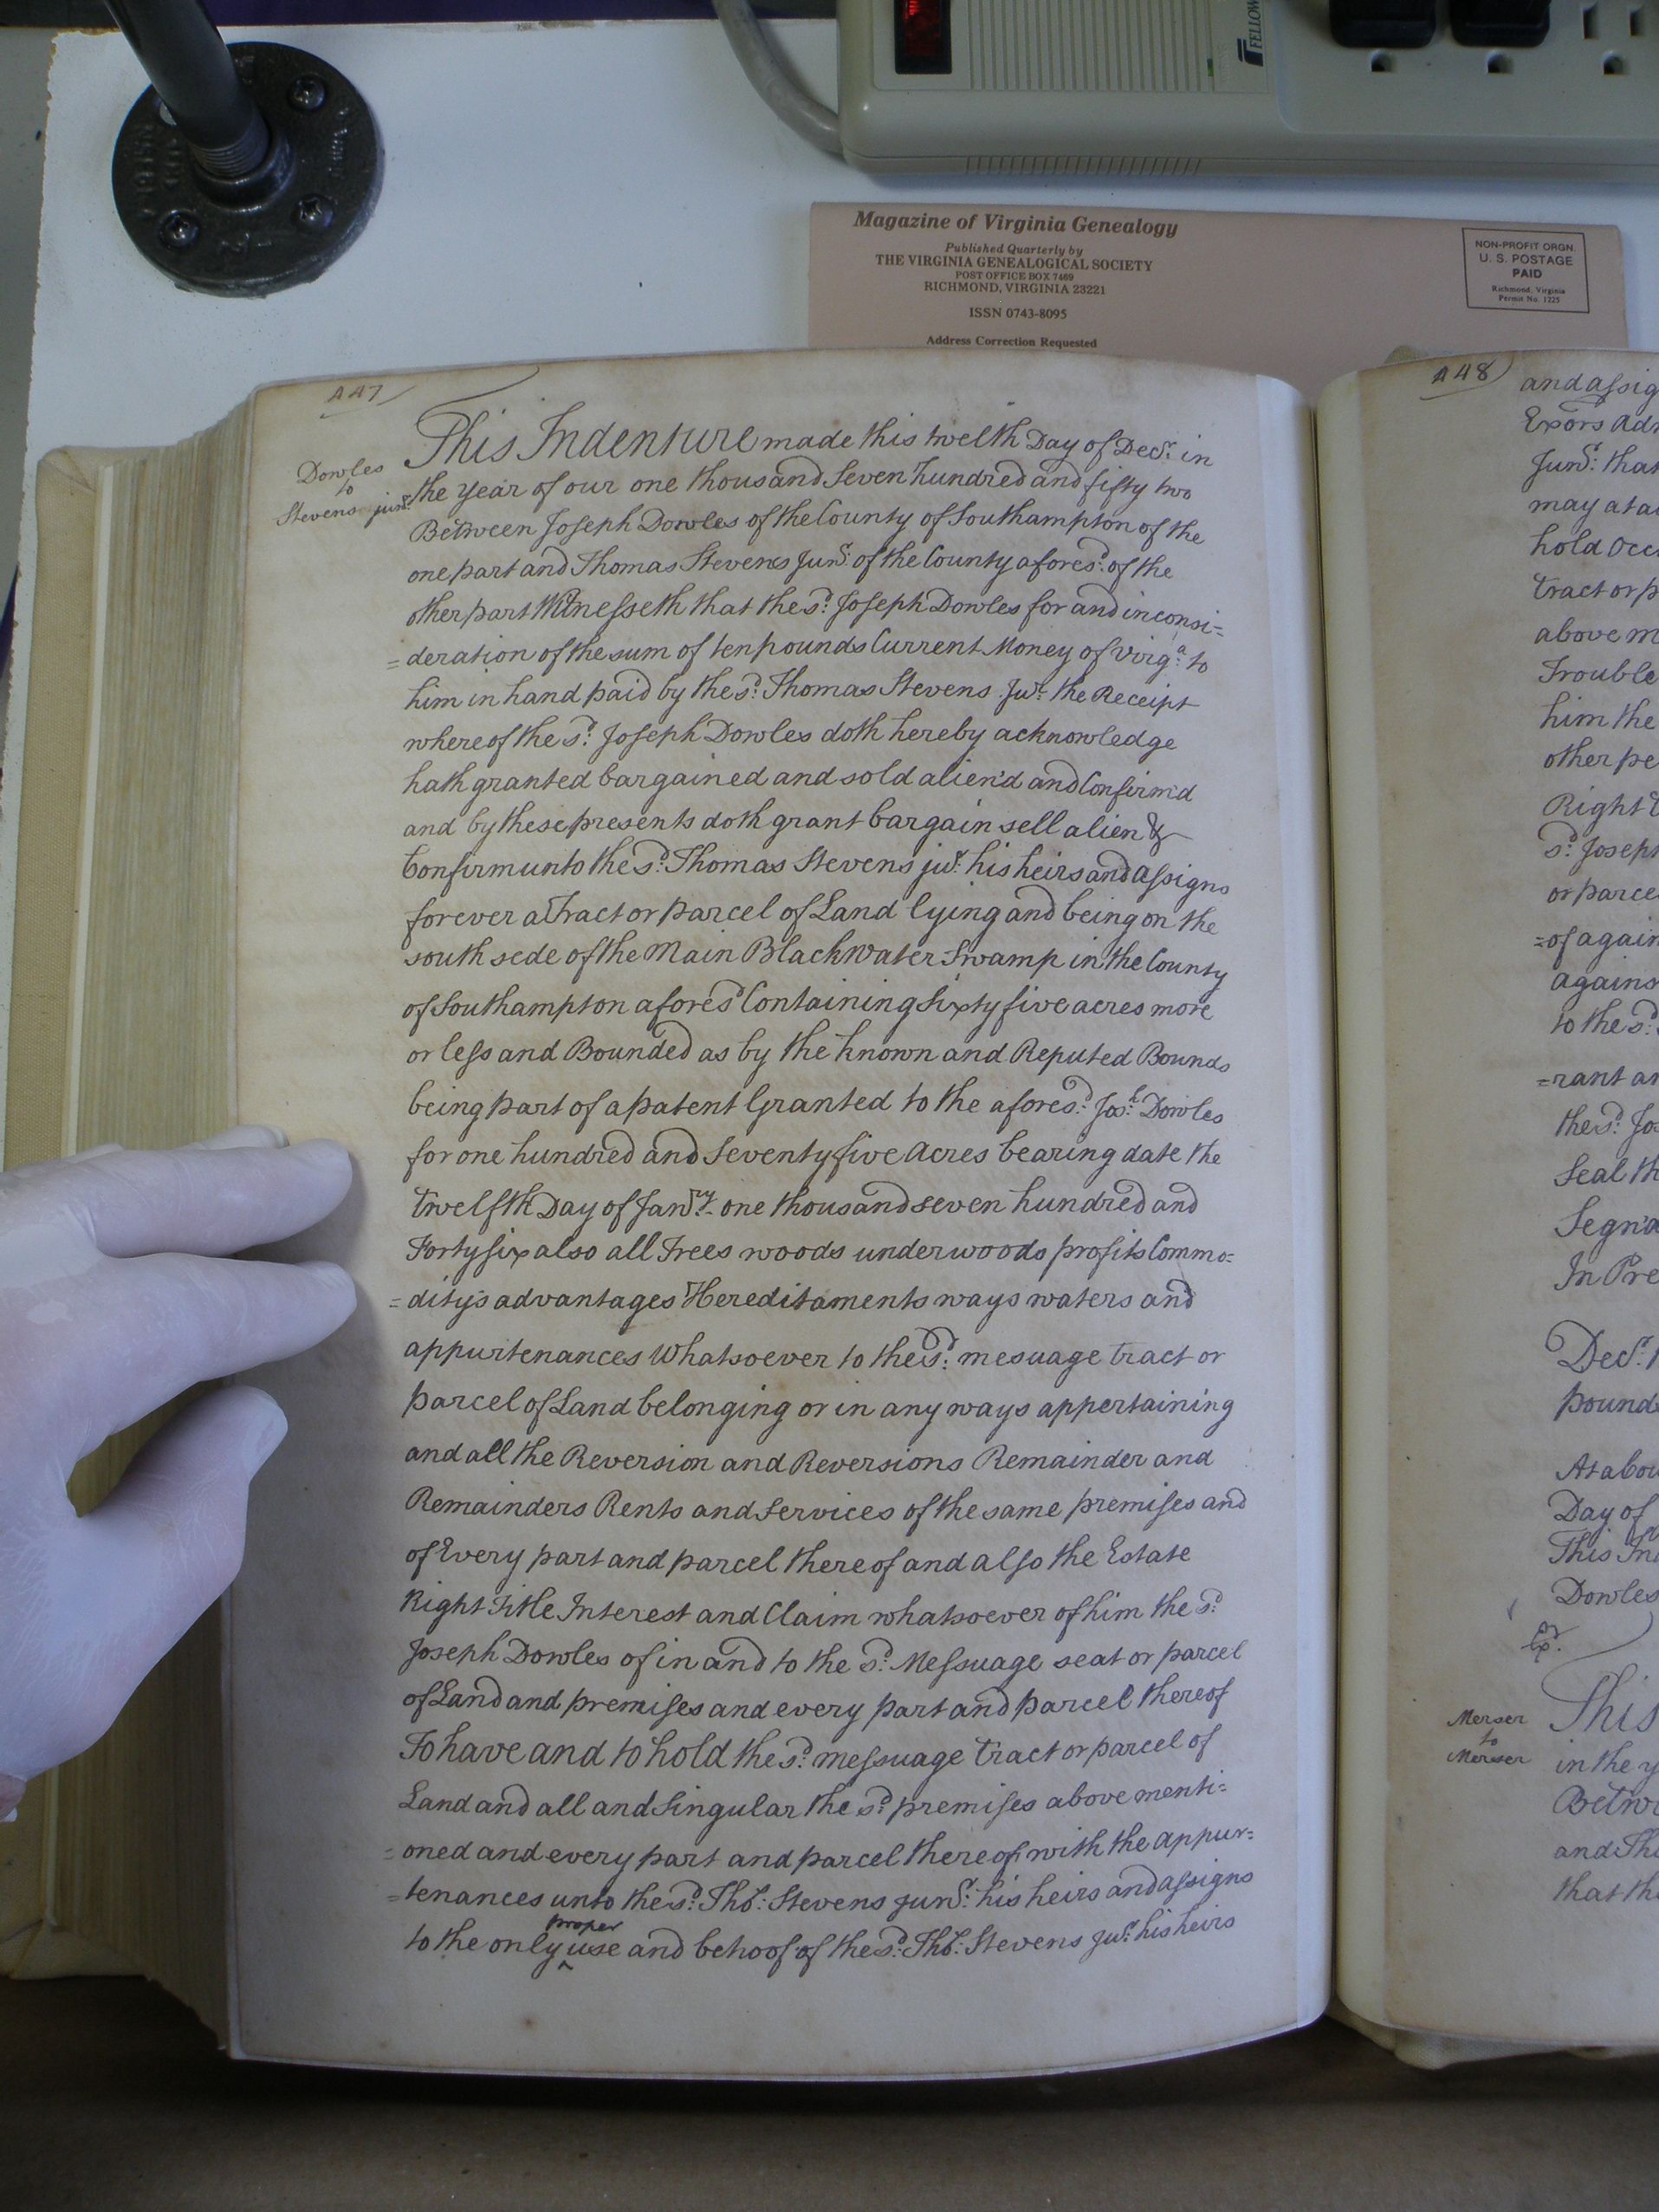 FELLOW
Magazine of Virginia Genealogy
Published Quarterly by
THE VIRGINIA GENEALOGICAL SOCIETY
POST OFFICE BOX 7469
RICHMOND, VIRGINIA 23221
ISSN 0743-8095
Address Correction Requested
NON-PROFIT ORGN.
U. S. POSTAGE
PAID
Richmond, Virginia
Permit No. 1225
447
Dowles
to
Stevens junr.
This Indenture made this twelth Day of Decr. in
the year of our one thousand Seven hundred and fifty two
Between Joseph Dowles of the County of Southampton of the
one part and Thomas Stevens Junr. of the County afores.d of the
other part Witnesseth that the s.d Joseph Dowles for and in consi=
=deration of the sum of ten pounds Current Money of Virg.a to
him in hand paid by the s.d Thomas Stevens Jur. the Receipt
whereof the s.d Joseph Dowles doth hereby acknowledge
hath granted bargained and sold alien'd and Confirm'd
and by these presents doth grant bargain sell alien &
Confirm unto the s.d Thomas Stevens jur. his heirs and assigns
forever a Tract or parcel of Land lying and being on the
south sede of the Main BlackWater Swamp in the County
of Southampton afores.d Containing Sixty five acres more
or less and Bounded as by the known and Reputed Bounds
being part of a patent Granted to the afores.d Jos.h Dowles
for one hundred and Seventy five Acres bearing date the
twelfth Day of Janry. one thousand seven hundred and
Forty six also all Trees woods underwoods profits Commo=
=dity's advantages Hereditaments ways waters and
appurtenances Whatsoever to the s.d mesuage tract or
parcel of Land belonging or in any ways appertaining
and all the Reversion and Reversions Remainder and
Remainders Rents and Services of the same premises and
of Every part and parcel thereof and also the Estate
Right Title Interest and Claim whatsoever of him the s.d
Joseph Dowles of in and to the s.d Messuage seat or parcel
of Land and premises and every part and parcel thereof
To have and to hold the s.d messuage tract or parcel of
Land and all and Singular the s.d premises above menti=
=oned and every part and parcel thereof with the appur=
=tenances unto the s.d Tho.s Stevens junr. his heirs and assigns
to the only proper use and behoof of the s.d Tho.s Stevens jur. his heirs
448
and assig
Exors Adm
Junr. that
may at a
hold Occ
tract or p
above m
Trouble
him the
other pe
Right
s.d Joseph
or parce
=of again
agains
to the s.d
=rant an
the s.d Jo
Seal th
Segn'd
In Pre
Decr. 1
pound
At a bou
Day of
This In
Dowles
Merser
to
Merser
This
in the y
Betw
and Th
that th